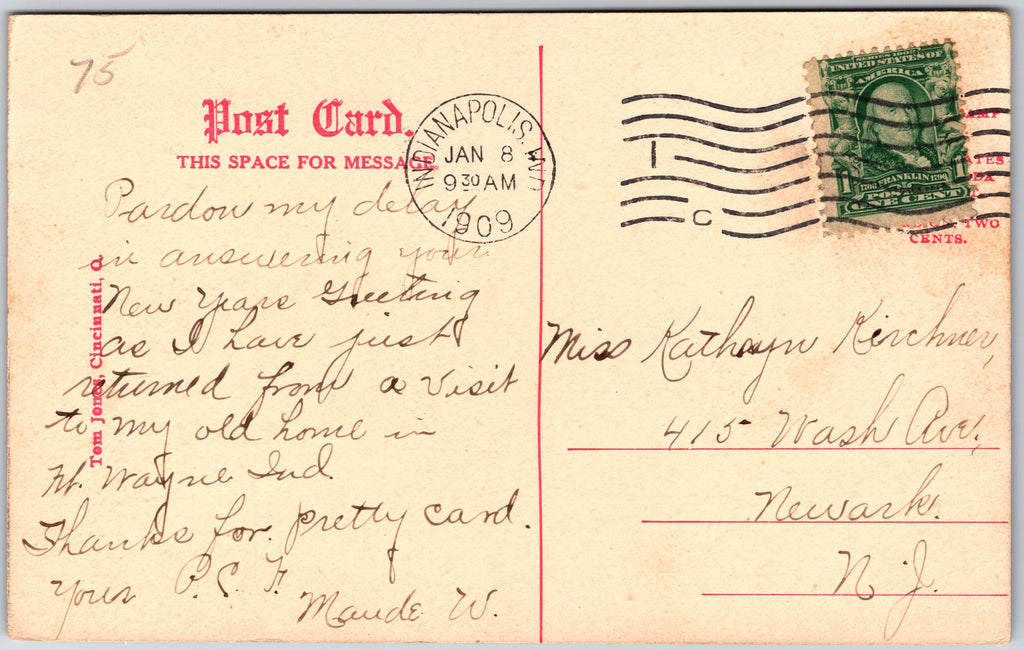 75
Post Card.
THIS SPACE FOR MESSAGE
INDIANAPOLIS, IND.
JAN 8
9 30 AM
1909
1
C
SERIES 1902
UNITED STATES OF
AMERICA
1706 FRANKLIN 1790
1 1
ONE CENT
TWO
CENTS.
Pardon my delay
in answering your
New Years Greeting
as I have just
returned from a visit
to my old home in
Ft. Wayne Ind.
Thanks for pretty card.
Your P.C.F.
Maude W.
Tom Jones, Cincinnati, O.
Miss Kathryn Kirchner,
415 Wash Ave,
Newark.
N.J.